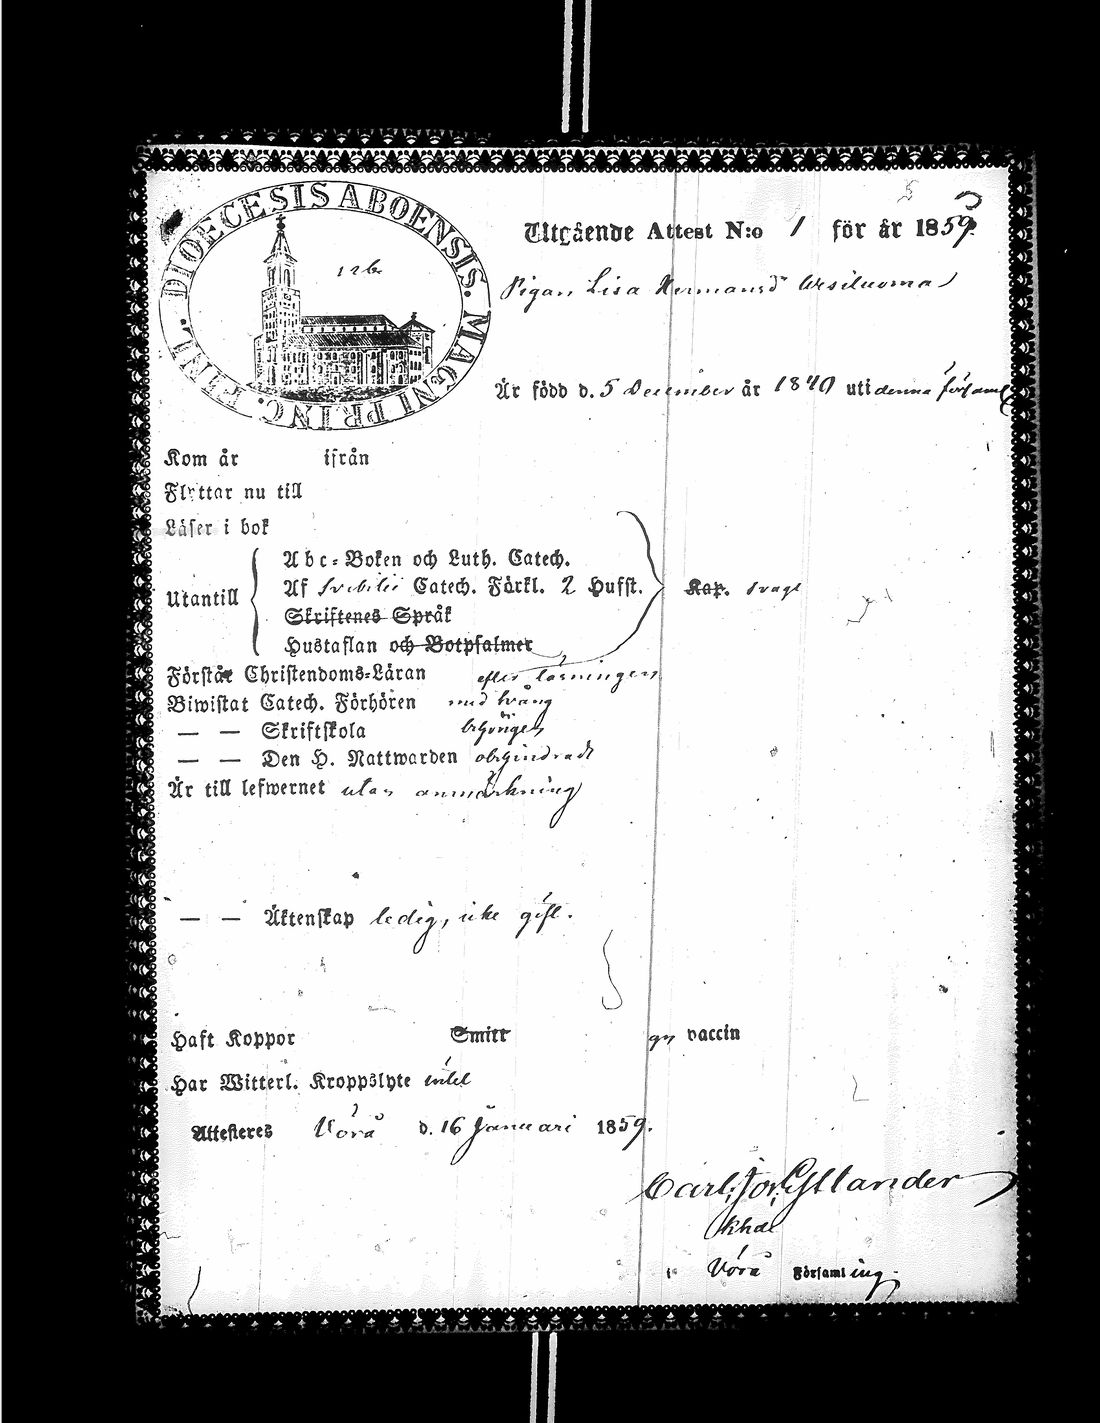 DIOECESIS ABOENSIS. MAGNI PRINC. FINL.
126
Utgående Attest N:o 1 för år 1859.
Pigan Lisa Hermansd
Är född d. 5 December år 1840 uti denna församl
Kom år ifrån
Flyttar nu till
Läser i bok
Utantill
Abc-Boken och Luth. Catech.
Af Svebilii Catech. Förkl. 2 Hufst. Kap. svagt
Skriftenes Språk
Hustaflan och Botpsalmer
Förstår Christendoms-Läran efter läsningen
Biwistat Catech. Förhören med tvång
— — Skriftskola behörigen
— — Den H. Nattwarden obehindradt
Är till lefwernet utan anmärkning
— — Äktenskap ledig, icke gift.
Haft Koppor Smitt vaccin
Har Witterl. Kroppslyte intet
Attesteres Vörå d. 16 Januari 1859.
Carl Gyllander
Khde
Vörå Församling.